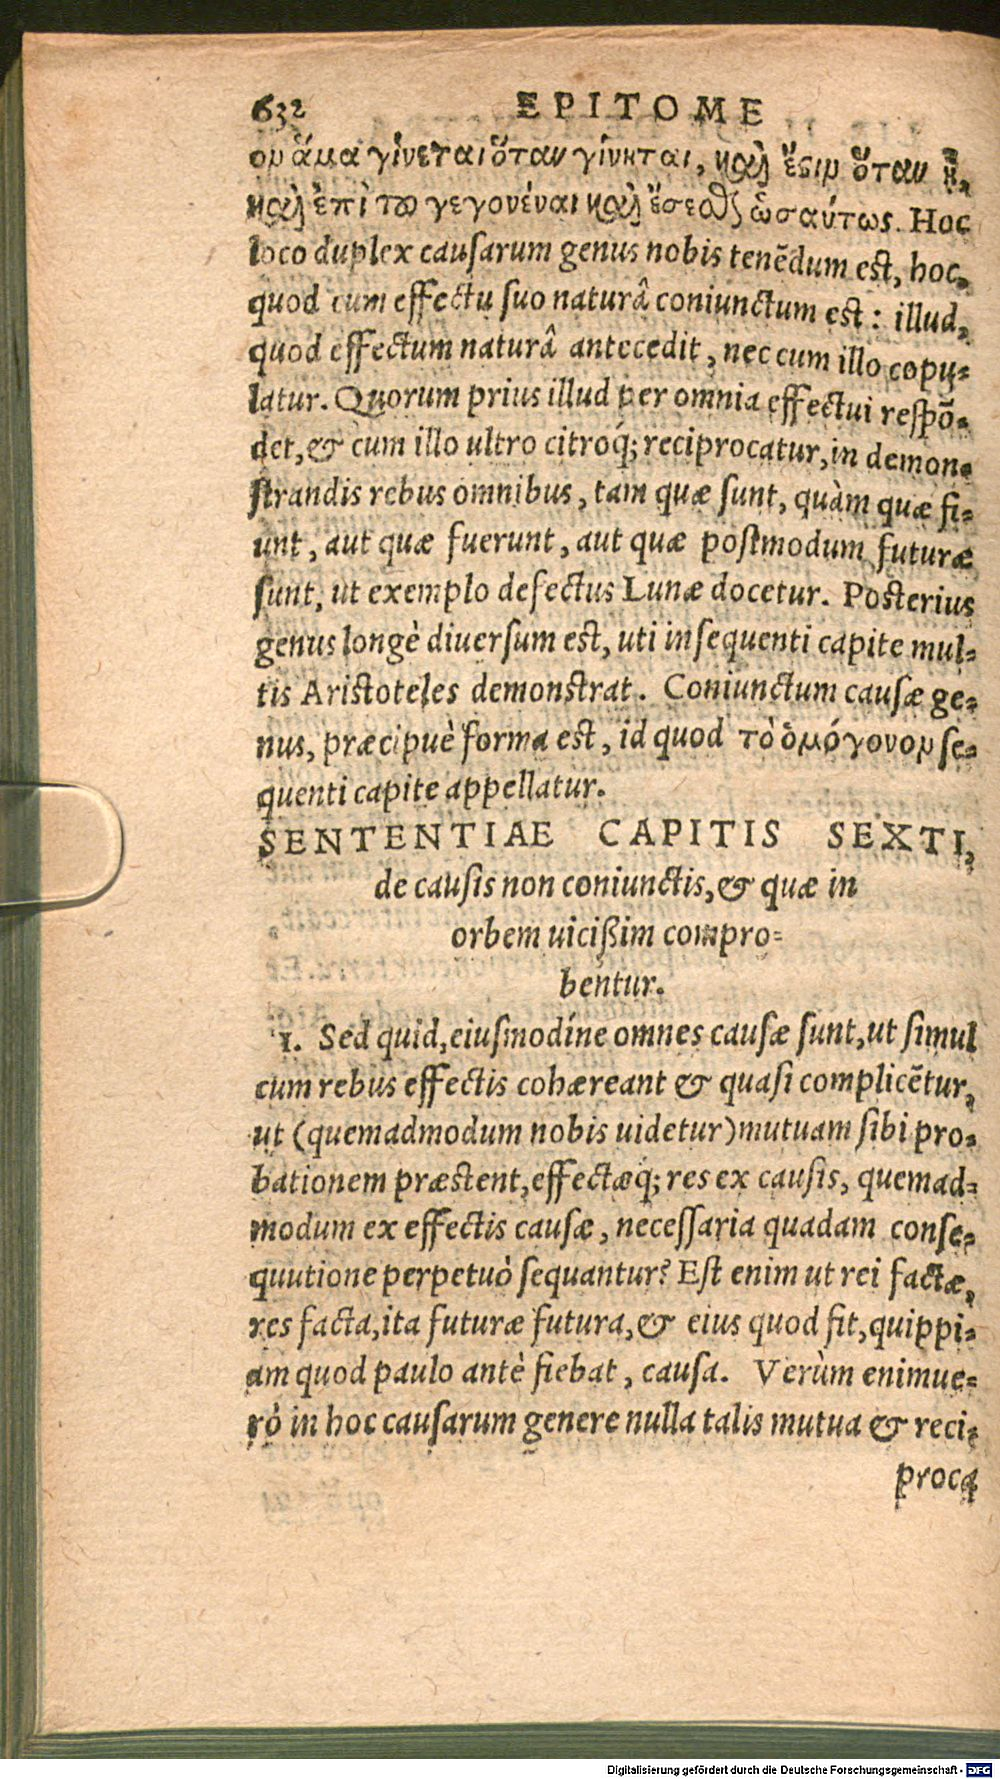 632 EPITOME
ον ἅμα γίνεται ὅταν γίνηται, καὶ ἔστιν ὅταν ᾖ,
καὶ ἐπὶ τοῦ γεγονέναι καὶ ἔσεσθαι ὡσαύτως. Hoc
loco duplex causarum genus nobis tenēdum est, hoc,
quod cum effectu suo naturâ coniunctum est: illud,
quod effectum naturâ antecedit, nec cum illo copu-
latur. Quorum prius illud per omnia effectui respō-
det, & cum illo ultro citroq́; reciprocatur, in demon-
strandis rebus omnibus, tam quæ sunt, quàm quæ fi-
unt, aut quæ fuerunt, aut quæ postmodum futuræ
sunt, ut exemplo defectus Lunæ docetur. Posterius
genus longè diuersum est, uti insequenti capite mul-
tis Aristoteles demonstrat. Coniunctum causæ ge-
nus, præcipuè forma est, id quod τὸ ὁμόγονον se-
quenti capite appellatur.
SENTENTIAE CAPITIS SEXTI,
de causis non coniunctis, & quæ in
orbem uicißim compro-
bentur.
1. Sed quid, eiusmodíne omnes causæ sunt, ut simul
cum rebus effectis cohæreant & quasi complicētur,
ut (quemadmodum nobis uidetur) mutuam sibi pro-
bationem præstent, effectæq́; res ex causis, quemad-
modum ex effectis causæ, necessaria quadam conse-
quutione perpetuò sequantur? Est enim ut rei factæ,
res facta, ita futuræ futura, & eius quod fit, quippi-
am quod paulo antè fiebat, causa. Verùm enimue-
rò in hoc causarum genere nulla talis mutua & reci-
proca
Digitalisierung gefördert durch die Deutsche Forschungsgemeinschaft - DFG